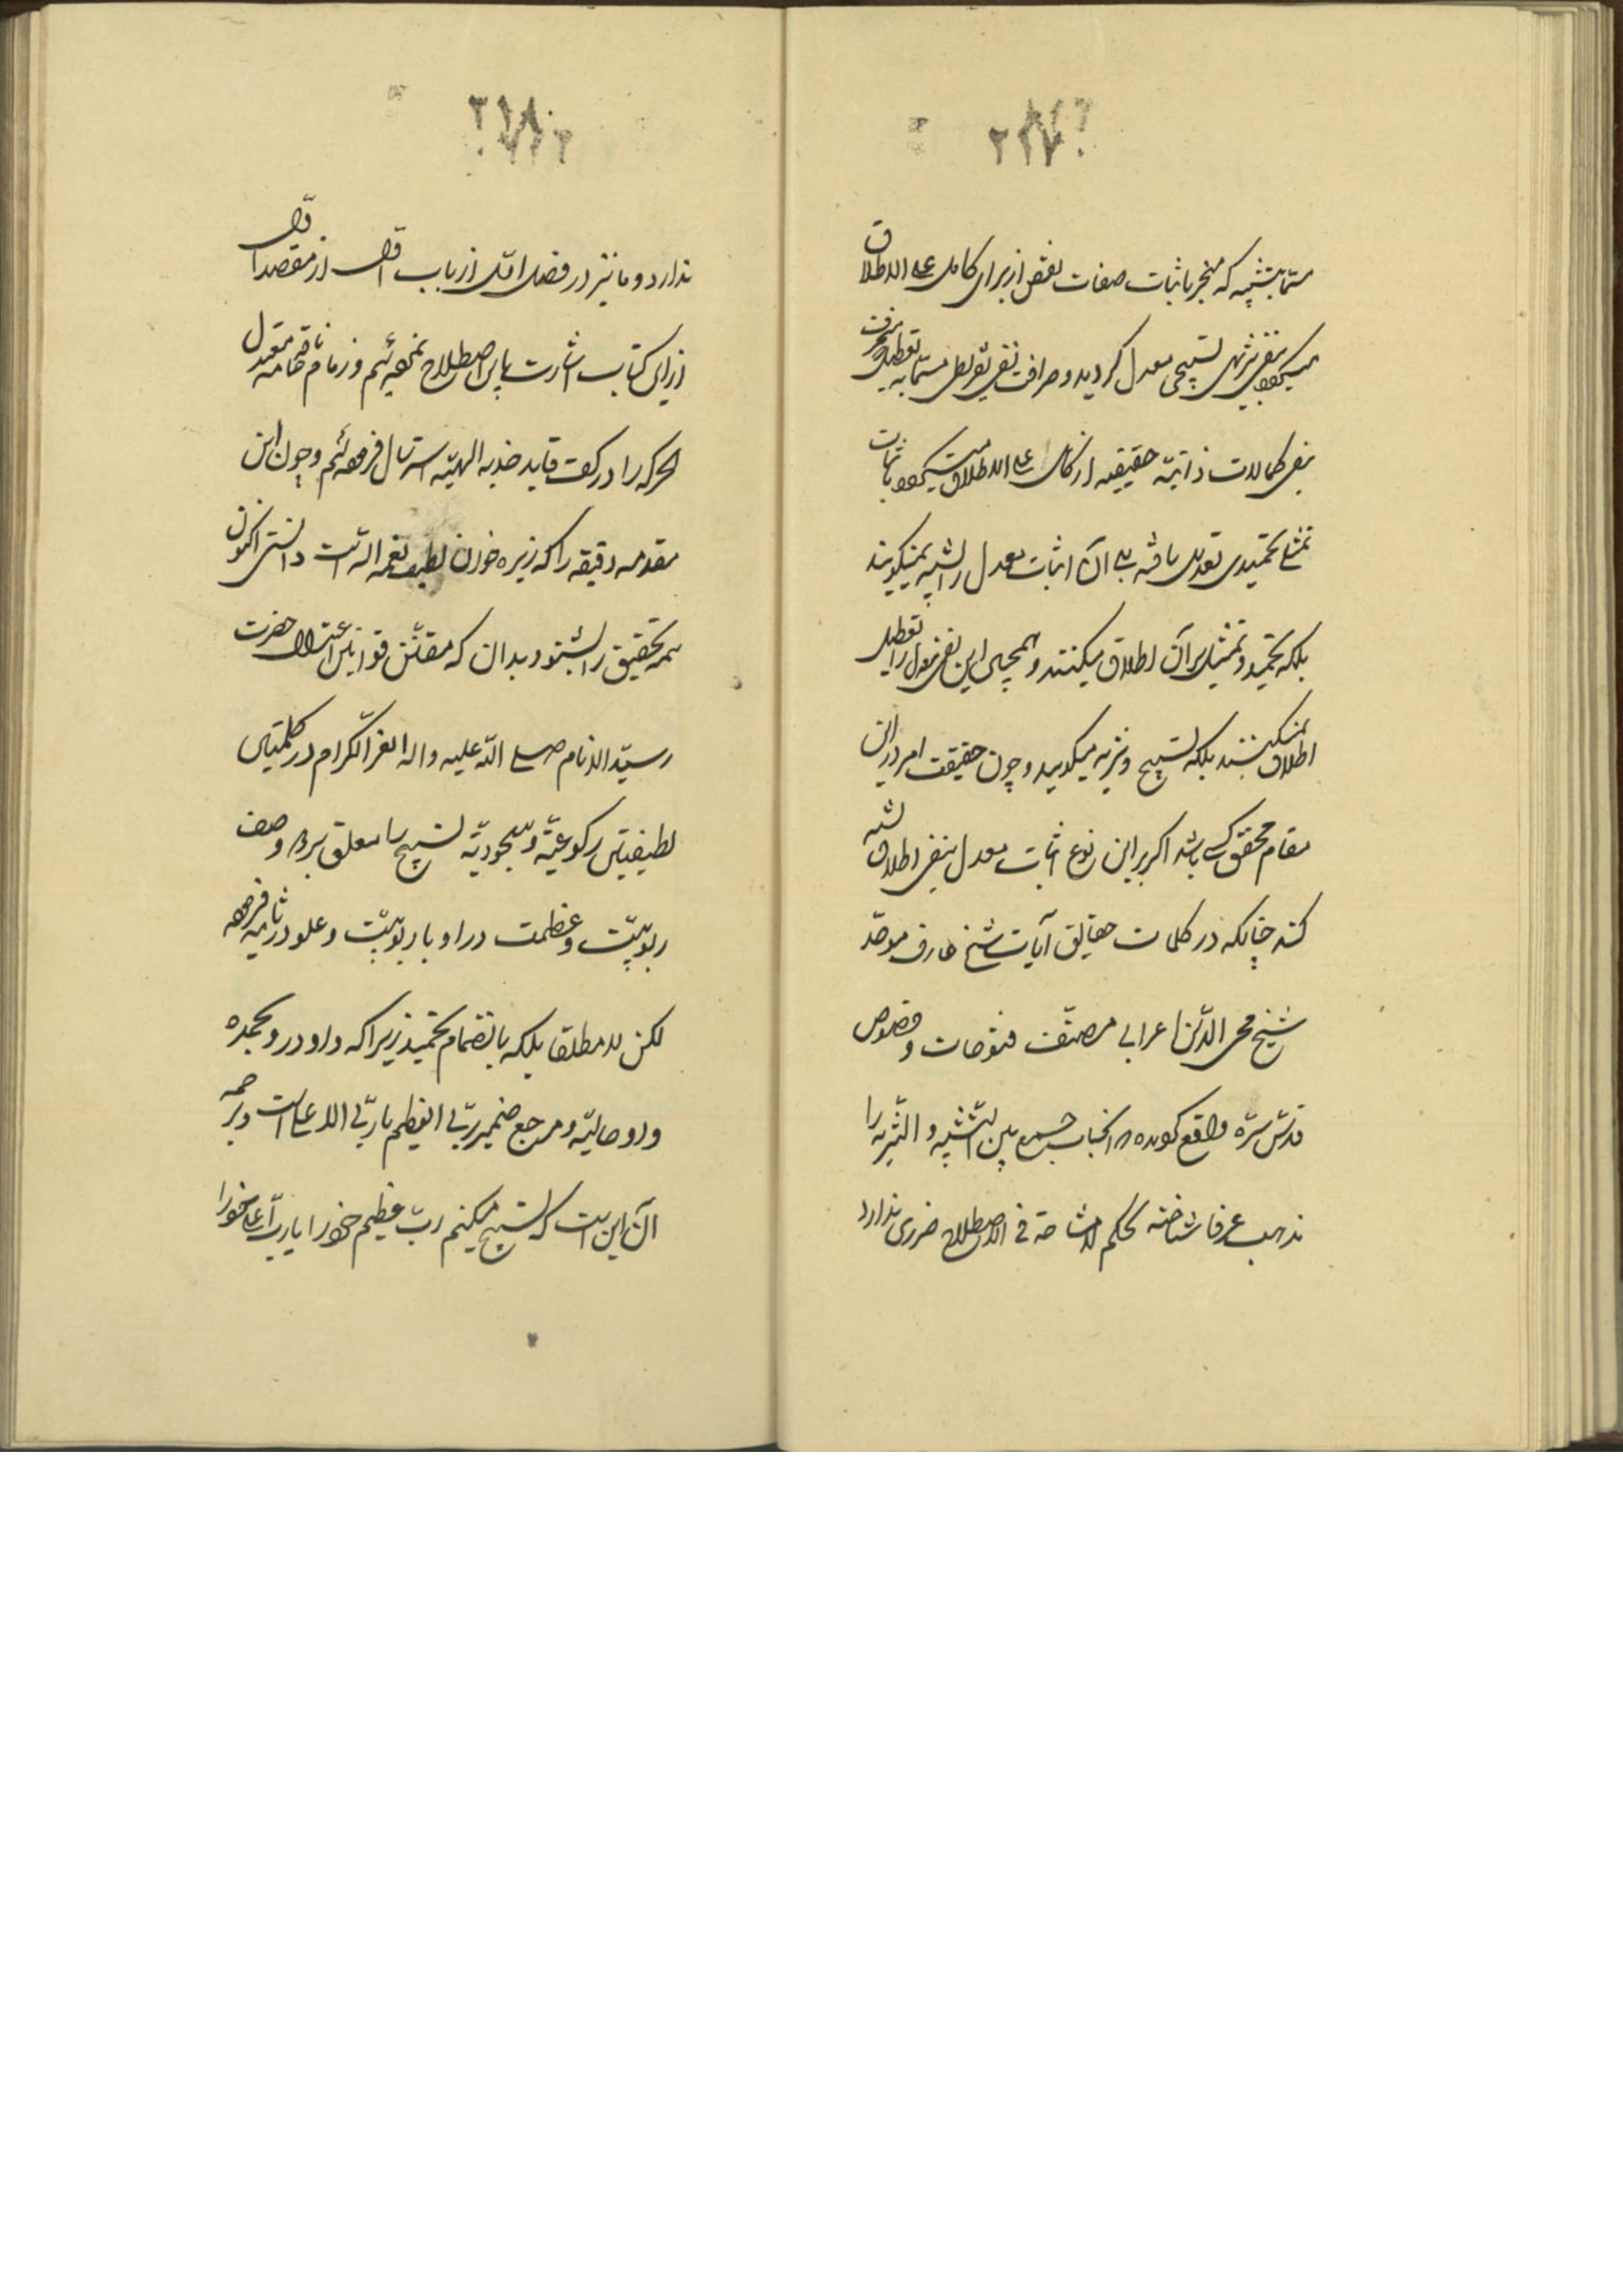 ۲۱۷
مسمّا بتشبیه که منجر باثبات صفات نقص از برای کامل علی الاطلاق
میگردد بنفی تنزیهی تسبیحی معدل گردید و صرافت نفی تفریطی مسمّا به تعطیل
بنفی کمالات ذاتیّه حقیقیه از کامل علی الاطلاق میگردد باثبات
تمثیلی تحمیدی تعدیل یافته آن اثبات معدل را تشبیه نمیگویند
بلکه تحمید و تمثیل بر آن اطلاق میکنند و همچنین این نفی معدل را تعطیل
اطلاق نمیکنند بلکه تسبیح و تنزیه میگویند و چون حقیقت امر در این
مقام محقق باشد اگر بر این نوع اثبات معدل بنفی اطلاق تشبیه
کند چنانکه در کلمات حقایق آیات شیخ عارف موحّد
شیخ محی الدّین اعرابی مصنّف فتوحات و فصوص
قدّس سرّه واقع گردیده و آنجناب جمع بین التّشبیه و التّنزیه را
مذهب عرفا شناخته بحکم لا مشاحة فی الاصطلاح ضرری ندارد
۲۱۸
ندارد و ما نیز در فصل اوّل از باب اوّل از مقصد اوّل
از این کتاب اشارت باین اصطلاح نموده‌ایم و زمام ناقه خامه معتدل
الحرکه را در کف قاید جذبه الهیّه استرسال فرموده‌ایم و چون این
مقدمه دقیقه را که زیره خوان لطیف نعمه الله است دانستی اکنون
تتمه تحقیق را بشنو و بدان که مقنّن قوانین اعتدال حضرت
سیّد الانام صلی اللّه علیه و اله الغرّ الکرام در کلمتین
لطیفتین رکوعیّه و سجودیّه تسبیح را معلق بر دو وصف
ربوبیّت و عظمت در اولی و بار ربوبیّت و علو در ثانیه فرموده
لکن لا مطلقا بلکه بانضمام تحمید زیرا که واو در و بحمده
واو حالیّه و مرجع ضمیر ربّی العظیم یا ربّی الاعلی است و ترجمه
آن این است که تسبیح میکنم ربّ عظیم خود را یا ربّ اعلی خود را